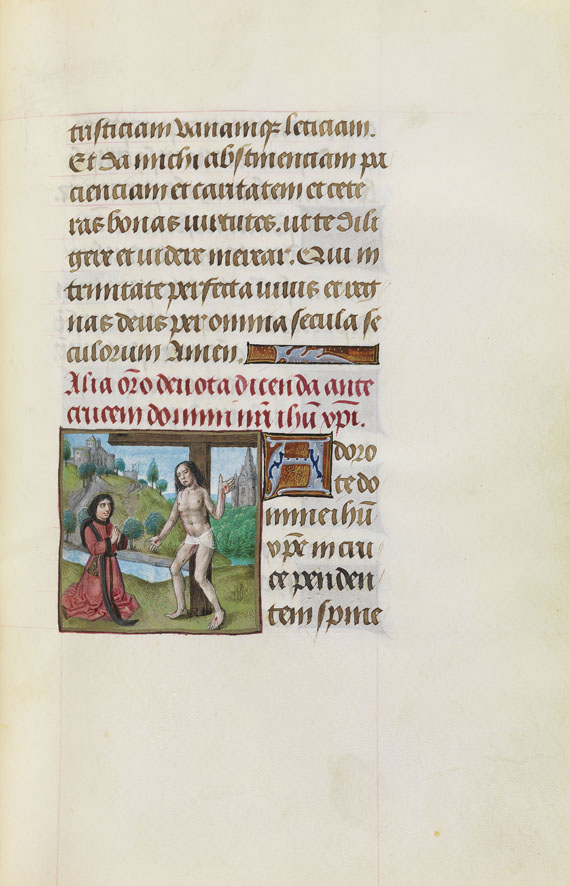 tristiciam vanamqꝫ leticiam.
Et da michi abstinenciam pa
cienciam et caritatem et cete
ras bonas uirtutes. ut te dili
gere et uidere merear. Qui in
trinitate perfecta uiuis et reg
nas deus per omnia secula se
culorum Amen.
Alia orō deuota dicenda ante
crucem domini nr̄i ihū xp̄i.
Adoro
te do
mine ihū
xp̄e in cru
ce penden
tem spine